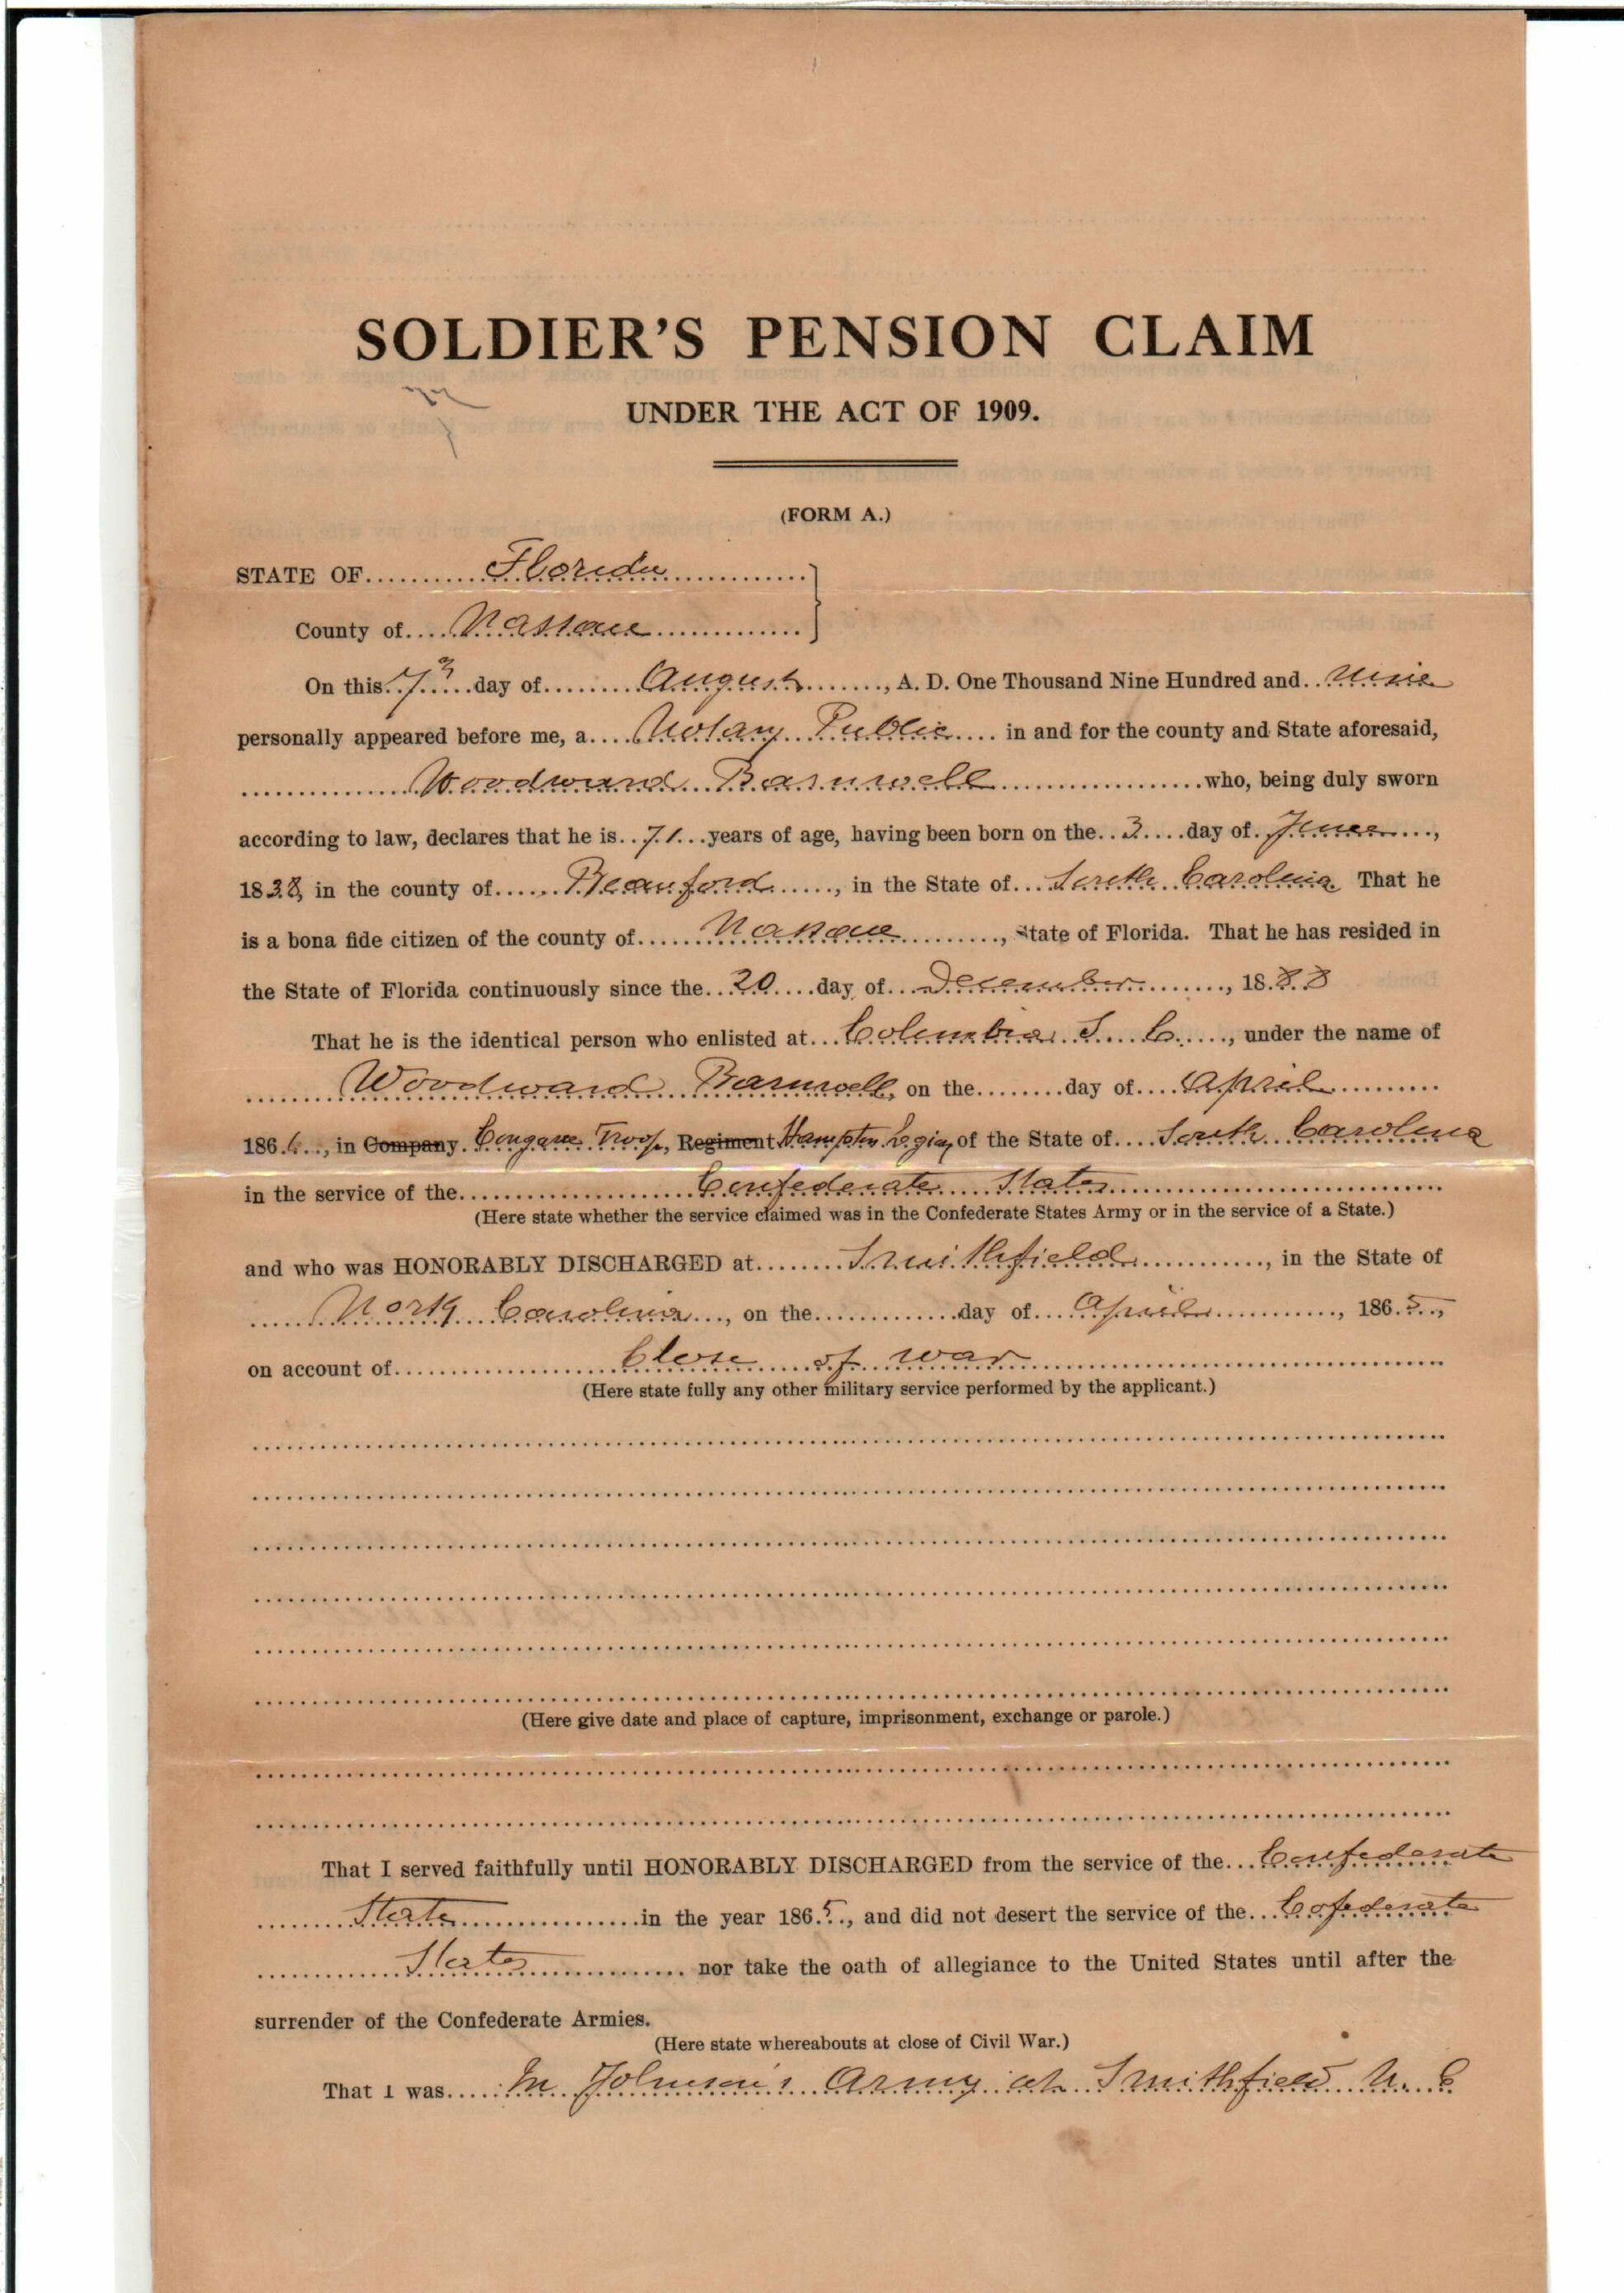 SOLDIER'S PENSION CLAIM
UNDER THE ACT OF 1909.
(FORM A.)
STATE OF Florida
County of Nassau
On this 7 day of August, A. D. One Thousand Nine Hundred and Nine
personally appeared before me, a Notary Public in and for the county and State aforesaid,
Woodward Barnwell who, being duly sworn
according to law, declares that he is 71 years of age, having been born on the 3 day of June,
1838, in the county of Beauford, in the State of South Carolina. That he
is a bona fide citizen of the county of Nassau, State of Florida. That he has resided in
the State of Florida continuously since the 20 day of December, 1888
That he is the identical person who enlisted at Columbia S. C., under the name of
Woodward Barnwell, on the day of April
186, in Company Congaree Troop, Regiment Hampton Legion, of the State of South Carolina
in the service of the Confederate States
(Here state whether the service claimed was in the Confederate States Army or in the service of a State.)
and who was HONORABLY DISCHARGED at Smithfield, in the State of
North Carolina, on the day of April, 1865,
on account of Close of war
(Here state fully any other military service performed by the applicant.)
(Here give date and place of capture, imprisonment, exchange or parole.)
That I served faithfully until HONORABLY DISCHARGED from the service of the Confederate
States in the year 1865, and did not desert the service of the Cofederate
States nor take the oath of allegiance to the United States until after the
surrender of the Confederate Armies.
(Here state whereabouts at close of Civil War.)
That I was In Johnson's Army at Smithfield N. C